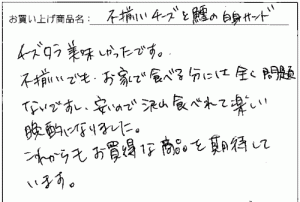 お買い上げ商品名： 不揃いチーズと鱈の白身サンド
チーズタラ美味しかったです。
不揃いでも、お家で食べる分には全く問題
ないですし、安いので沢山食べれて楽しい
晩酌になりました。
これからもお買得な商品を期待して
います。